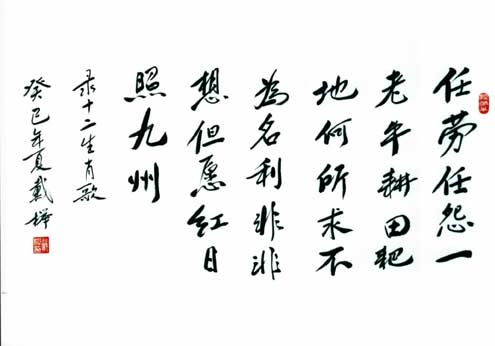 任劳任怨一
老牛耕田耙
地何所求不
为名利非非
想但愿红日
照九州
录十二生肖歌
癸巳年夏戴烨